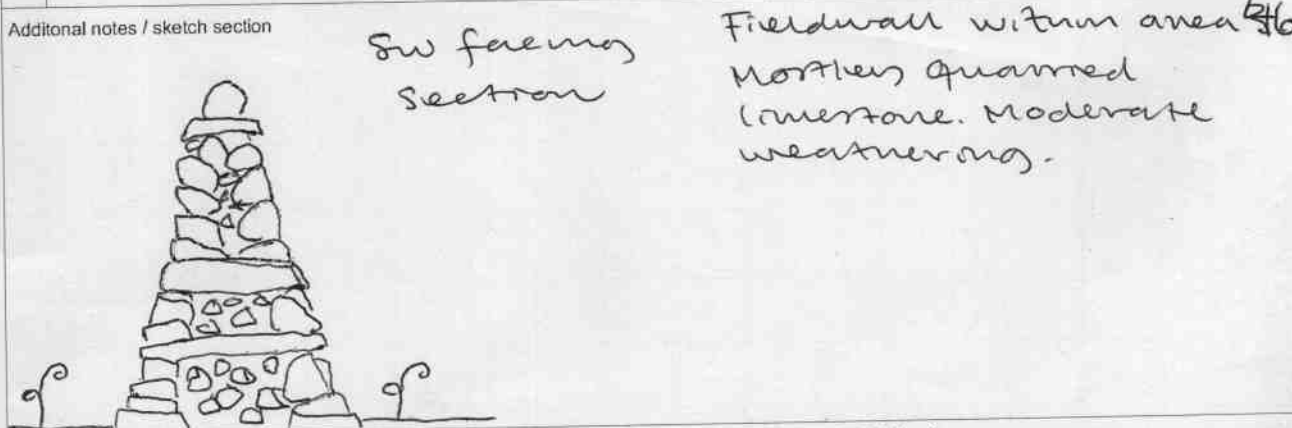 Additonal notes / sketch section
SW facing
section
Fieldwall within area
Mostley quarried
limestone. Moderate
weathering.